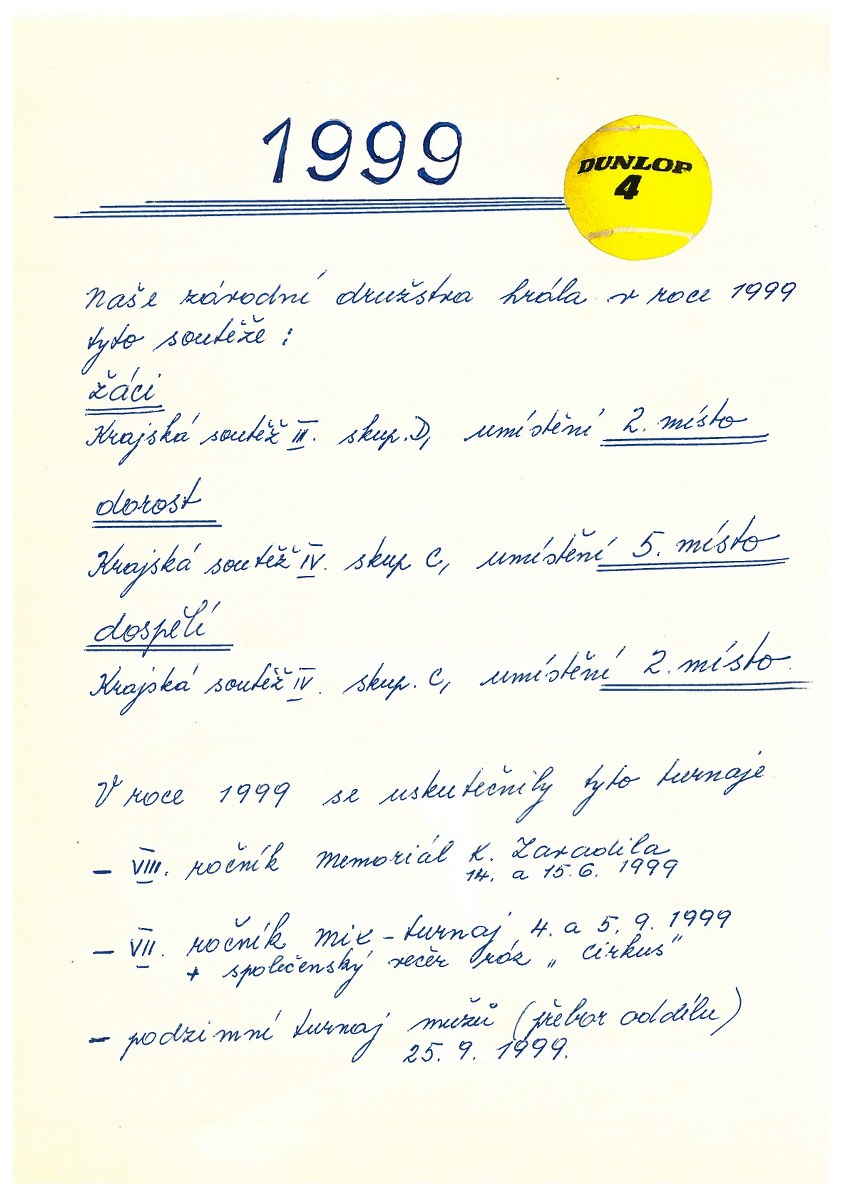 1999
DUNLOP
4
Naše závodní družstva hrála v roce 1999
tyto soutěže :
žáci
Krajská soutěž III. skup. D, umístění 2. místo
dorost
Krajská soutěž IV. skup C, umístění 5. místo
dospělí
Krajská soutěž IV. skup. C, umístění 2. místo.
V roce 1999 se uskutečnily tyto turnaje
– VIII. ročník memoriál K. Zavadila
14. a 15.6. 1999
– VII. ročník mix – turnaj 4. a 5. 9. 1999
+ společenský večer ráz „ cirkus"
– podzimní turnaj mužů (přebor oddílu)
25. 9. 1999.